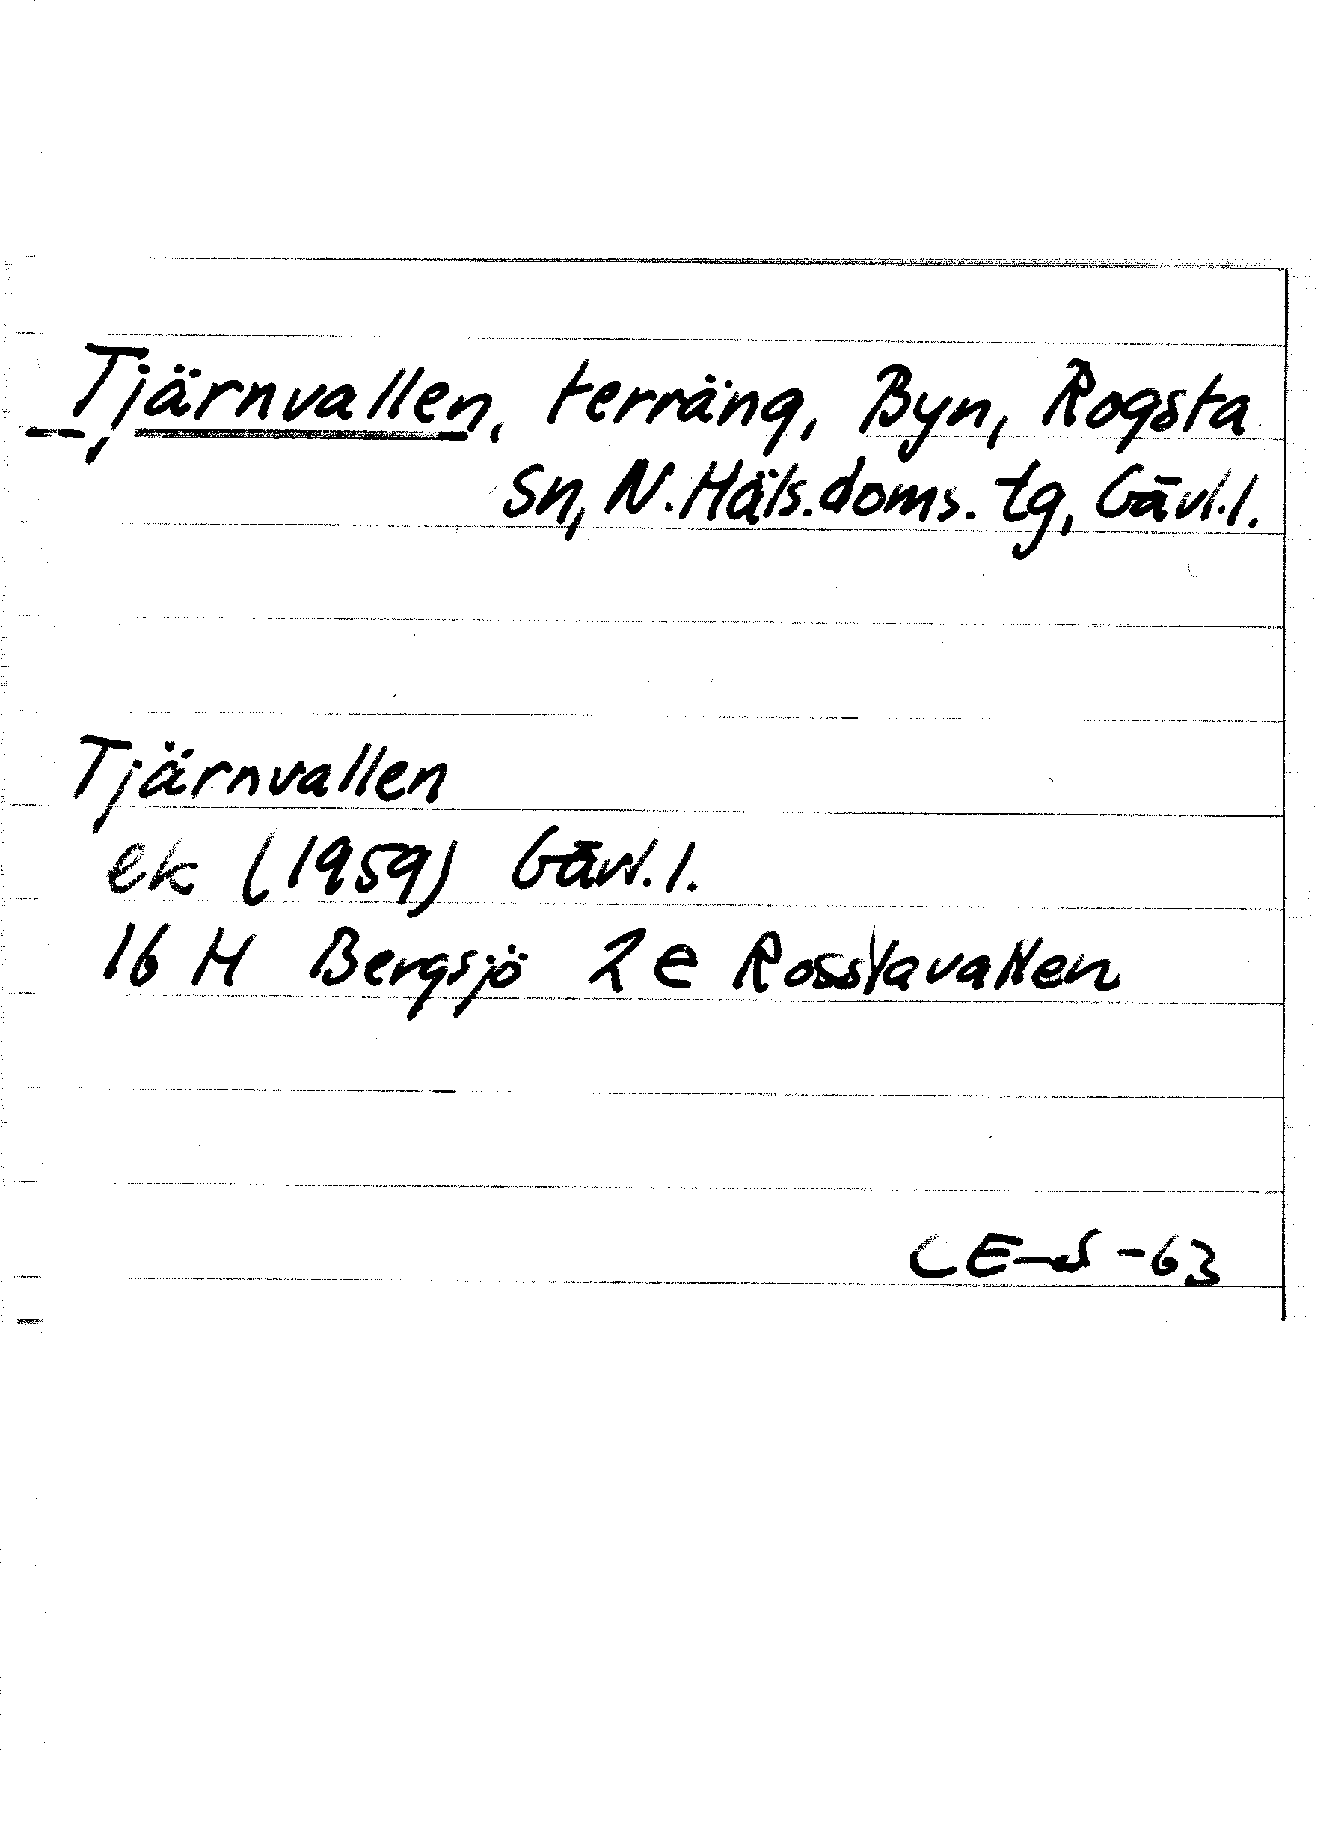 Tjärnvallen, terräng, Byn, Rogsta
sn, N. Häls. doms. tg, Gävl. l.
Tjärnvallen
ek (1959) Gävl. l.
16 H Bergsjö 2 e Rosslavallen
CE-S-63